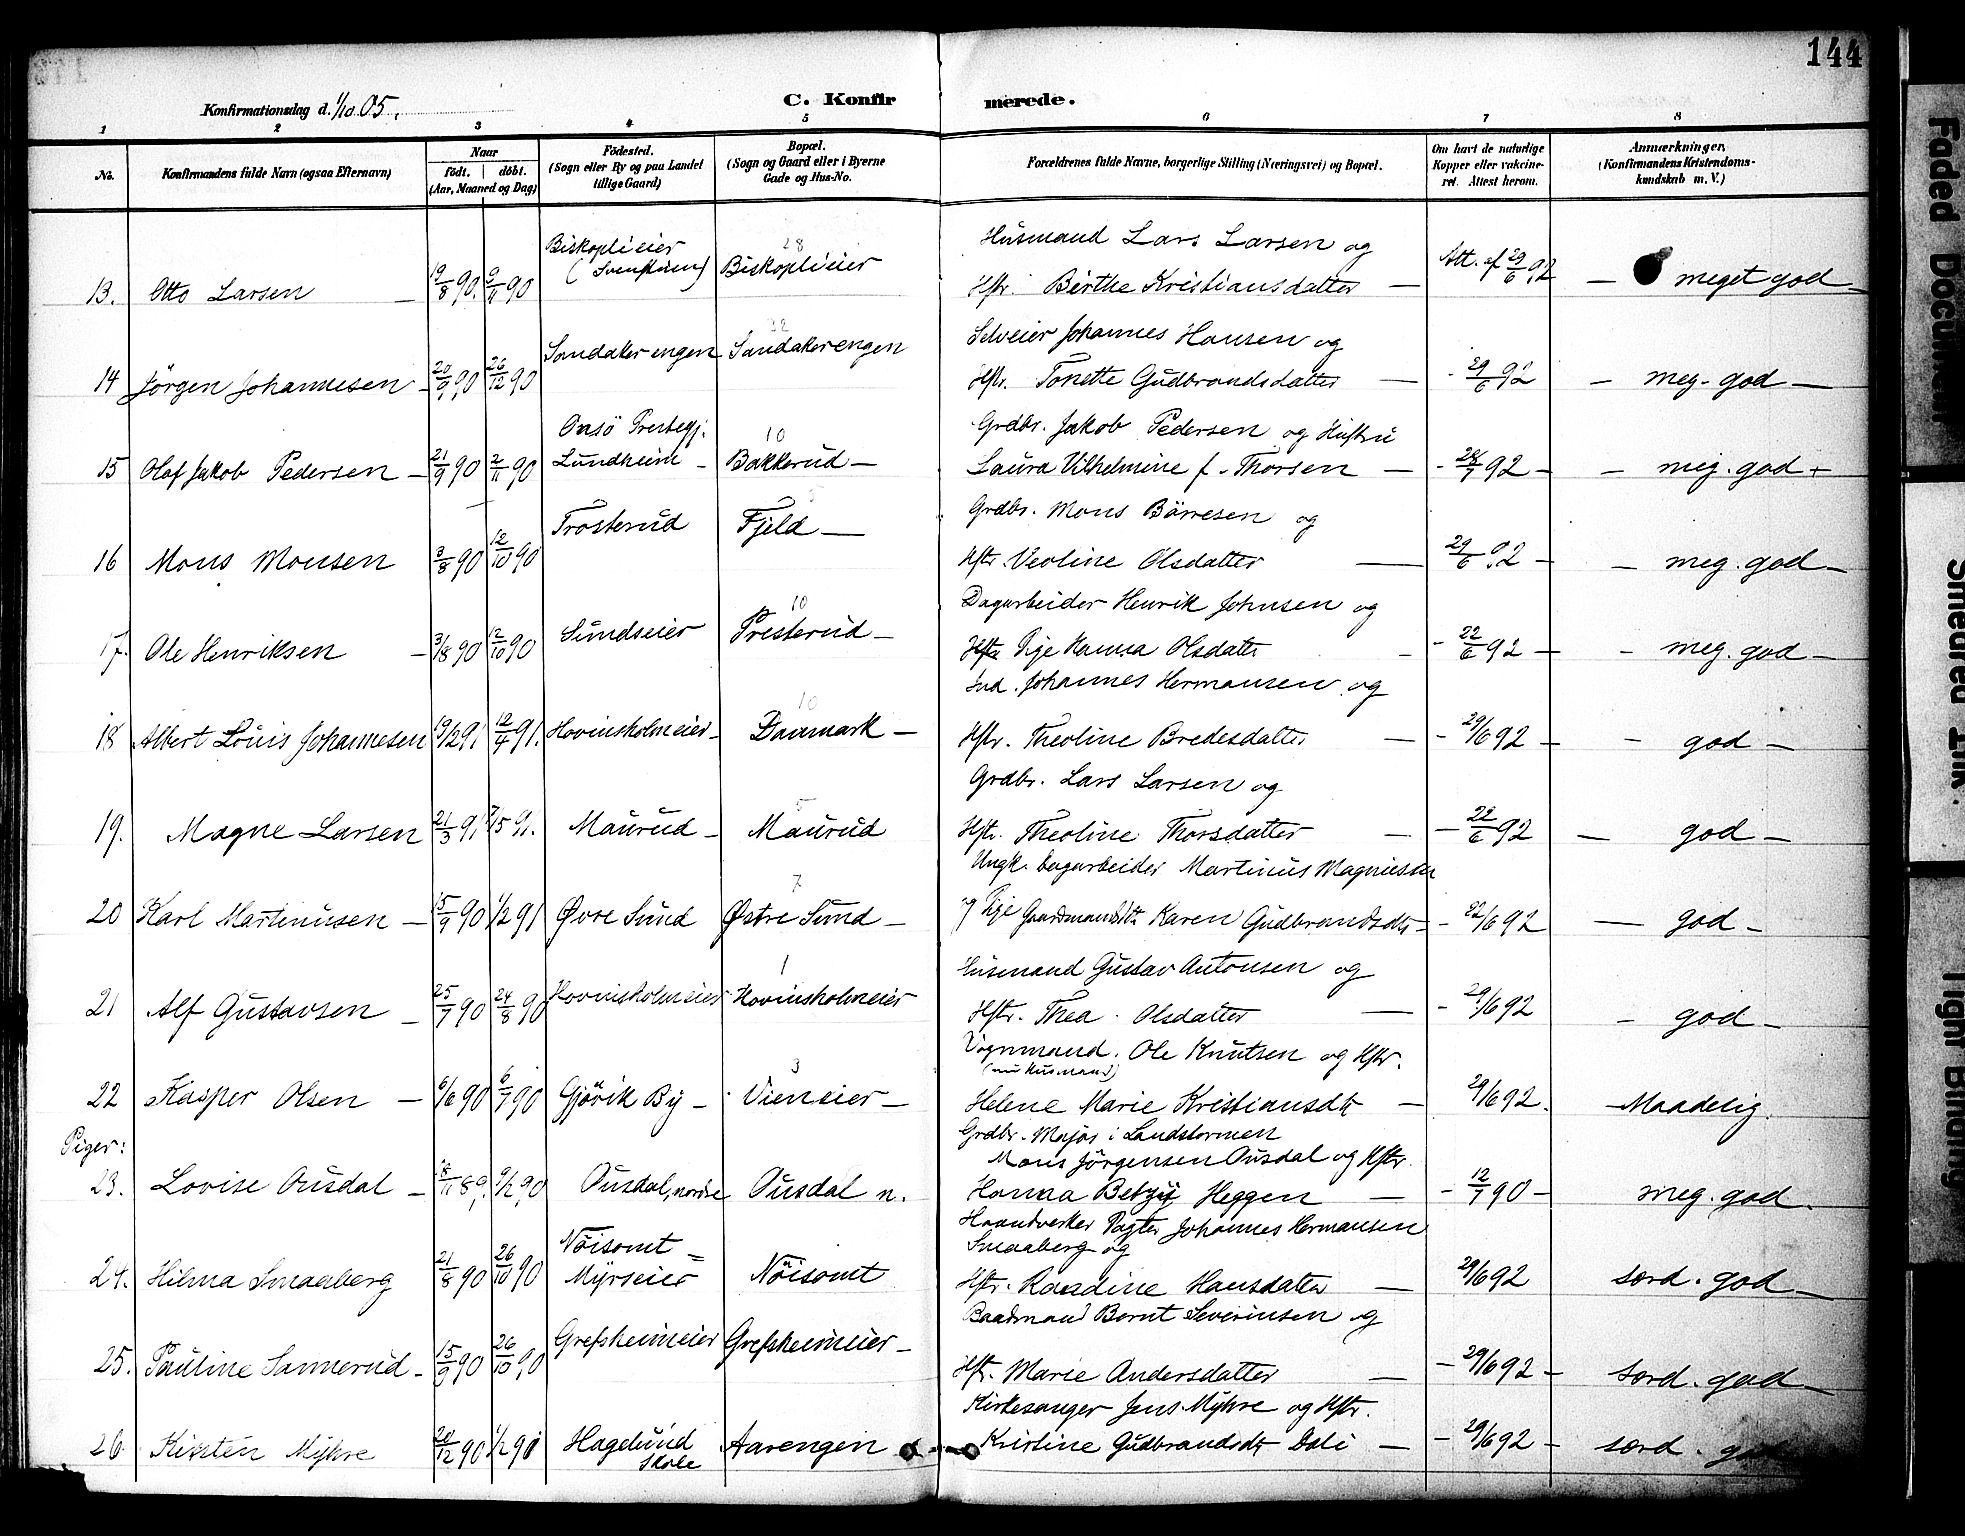 144
Konfirmationsdag d. 1/10 05.
C. Konfirmerede.
1 2 3 4 5 6 7 8
No.
Konfirmandens fulde Navn (ogsaa Efternavn)
Naar
födt. döbt.
(Aar, Maaned og Dag)
Födested.
(Sogn eller By og paa Landet
tillige Gaard)
Bopæl.
(Sogn og Gaard eller i Byerne
Gade og Hus-No.
Forældrenes fulde Navne, borgerlige Stilling (Næringsvei) og Bopæl.
Om havt de naturlige
Kopper eller vakcine-
ret. Attest herom.
Anmærkninger.
(Konfirmandens Kristendoms-
kundskab m. V.)
Biskoplieier 28 Husmand Lars Larsen og
13. Otto Larsen 19/8 90. 9/11 90 Biskoplieier Hstr. Birthe Kristiansdatter Att. af 29/6 92 meget god
32 Selveier Johannes Hansen og
14 Jörgen Johannesen 20/9 90 26/12 90 Sandakerengen Sandakerengen Hstr. Tonette Gudbrandsdatter 29/6 92 meg. god
Onsö Prestegj. 10 Grdbr. Jakob Pedersen og Hustru
15 Olaf Jakob Pedersen 21/9 90 2/11 90 Lundheim Bakkerud Laura Vilhelmine f. Thorsen 28/7 92 meg. god
Grdbr. Mons Börresen og
16 Mons Monsen 3/8 90 12/10 90 Trosterud Fjeld Hstr. Veoline Olsdatter 29/6 92 meg. god
10 Dagarbeider Henrik Johnsen og
17. Ole Henriksen 3/8 90 12/10 90 Sundseier Presterud Pige Hanna Olsdatter 22/6 92 meg. god
10 Ind. Johannes Hermansen og
18 Albert Louis Johannesen 19/2 91 12/4 91. Hovinsholmeier Danmark Hstr. Theoline Bredesdatter 29/6 92 god
5 Grdbr. Lars Larsen og
19. Magne Larsen 21/3 91 7/5 91. Maurud Maurud Hstr. Theoline Thorsdatter 22/6 92 god
7 Ungk. dagarbeider Martinus Magnussen
20 Karl Martinusen 15/9 90 1/2 91 Øvre Sund Østre Sund og Pige Gaardmandsdtr. Karen Gudbrandsdtr 22/6 92 god
1 Husmand Gustav Antonsen og
21 Alf Gustavsen 25/7 90 24/8 90 Hovinsholmeier Hovinsholmeier Hstr. Thea Olsdatter 29/6 92 god
3 Vognmand. Ole Knutsen og Hstr.
(nu Husmand)
22 Kasper Olsen 6/6 90 6/7 90 Gjövik By Vieneier Helene Marie Kristiansdtr 29/6 92. Maadelig.
Piger:
Grdbr. Majör i Landstormen
Mons Jörgensen Ousdal og Hstr.
23. Lovise Ousdal 18/11 89. 9/2 90 Ousdal, nordre Ousdal n. Hanna Betzy Heggen 12/7 90 meg. god.
Haandverker Pagter Johannes Hermansen
Smaaberg og
24. Hilma Smaaberg 21/8 90 26/10 90 Nöisomt = Myrseier Nöisomt Hstr. Raadine Hansdatter 29/6 92 særd. god
Baadmand Bernt Severinsen og
25. Pauline Sannerud 15/9 90 26/10 90 Grefsheimeier Grefsheimeier Hstr. Marie Andersdatter 29/6 92 særd. god
Kirkesanger Jens Myhre og Hstr.
26 Kirsten Myhre 20/12 90 1/2 91 Hagelund Skole Aarengen Kristine Gudbrandsdtr Dali 29/6 92 særd. god
Faded Document
Smeared Ink.
Tight Binding